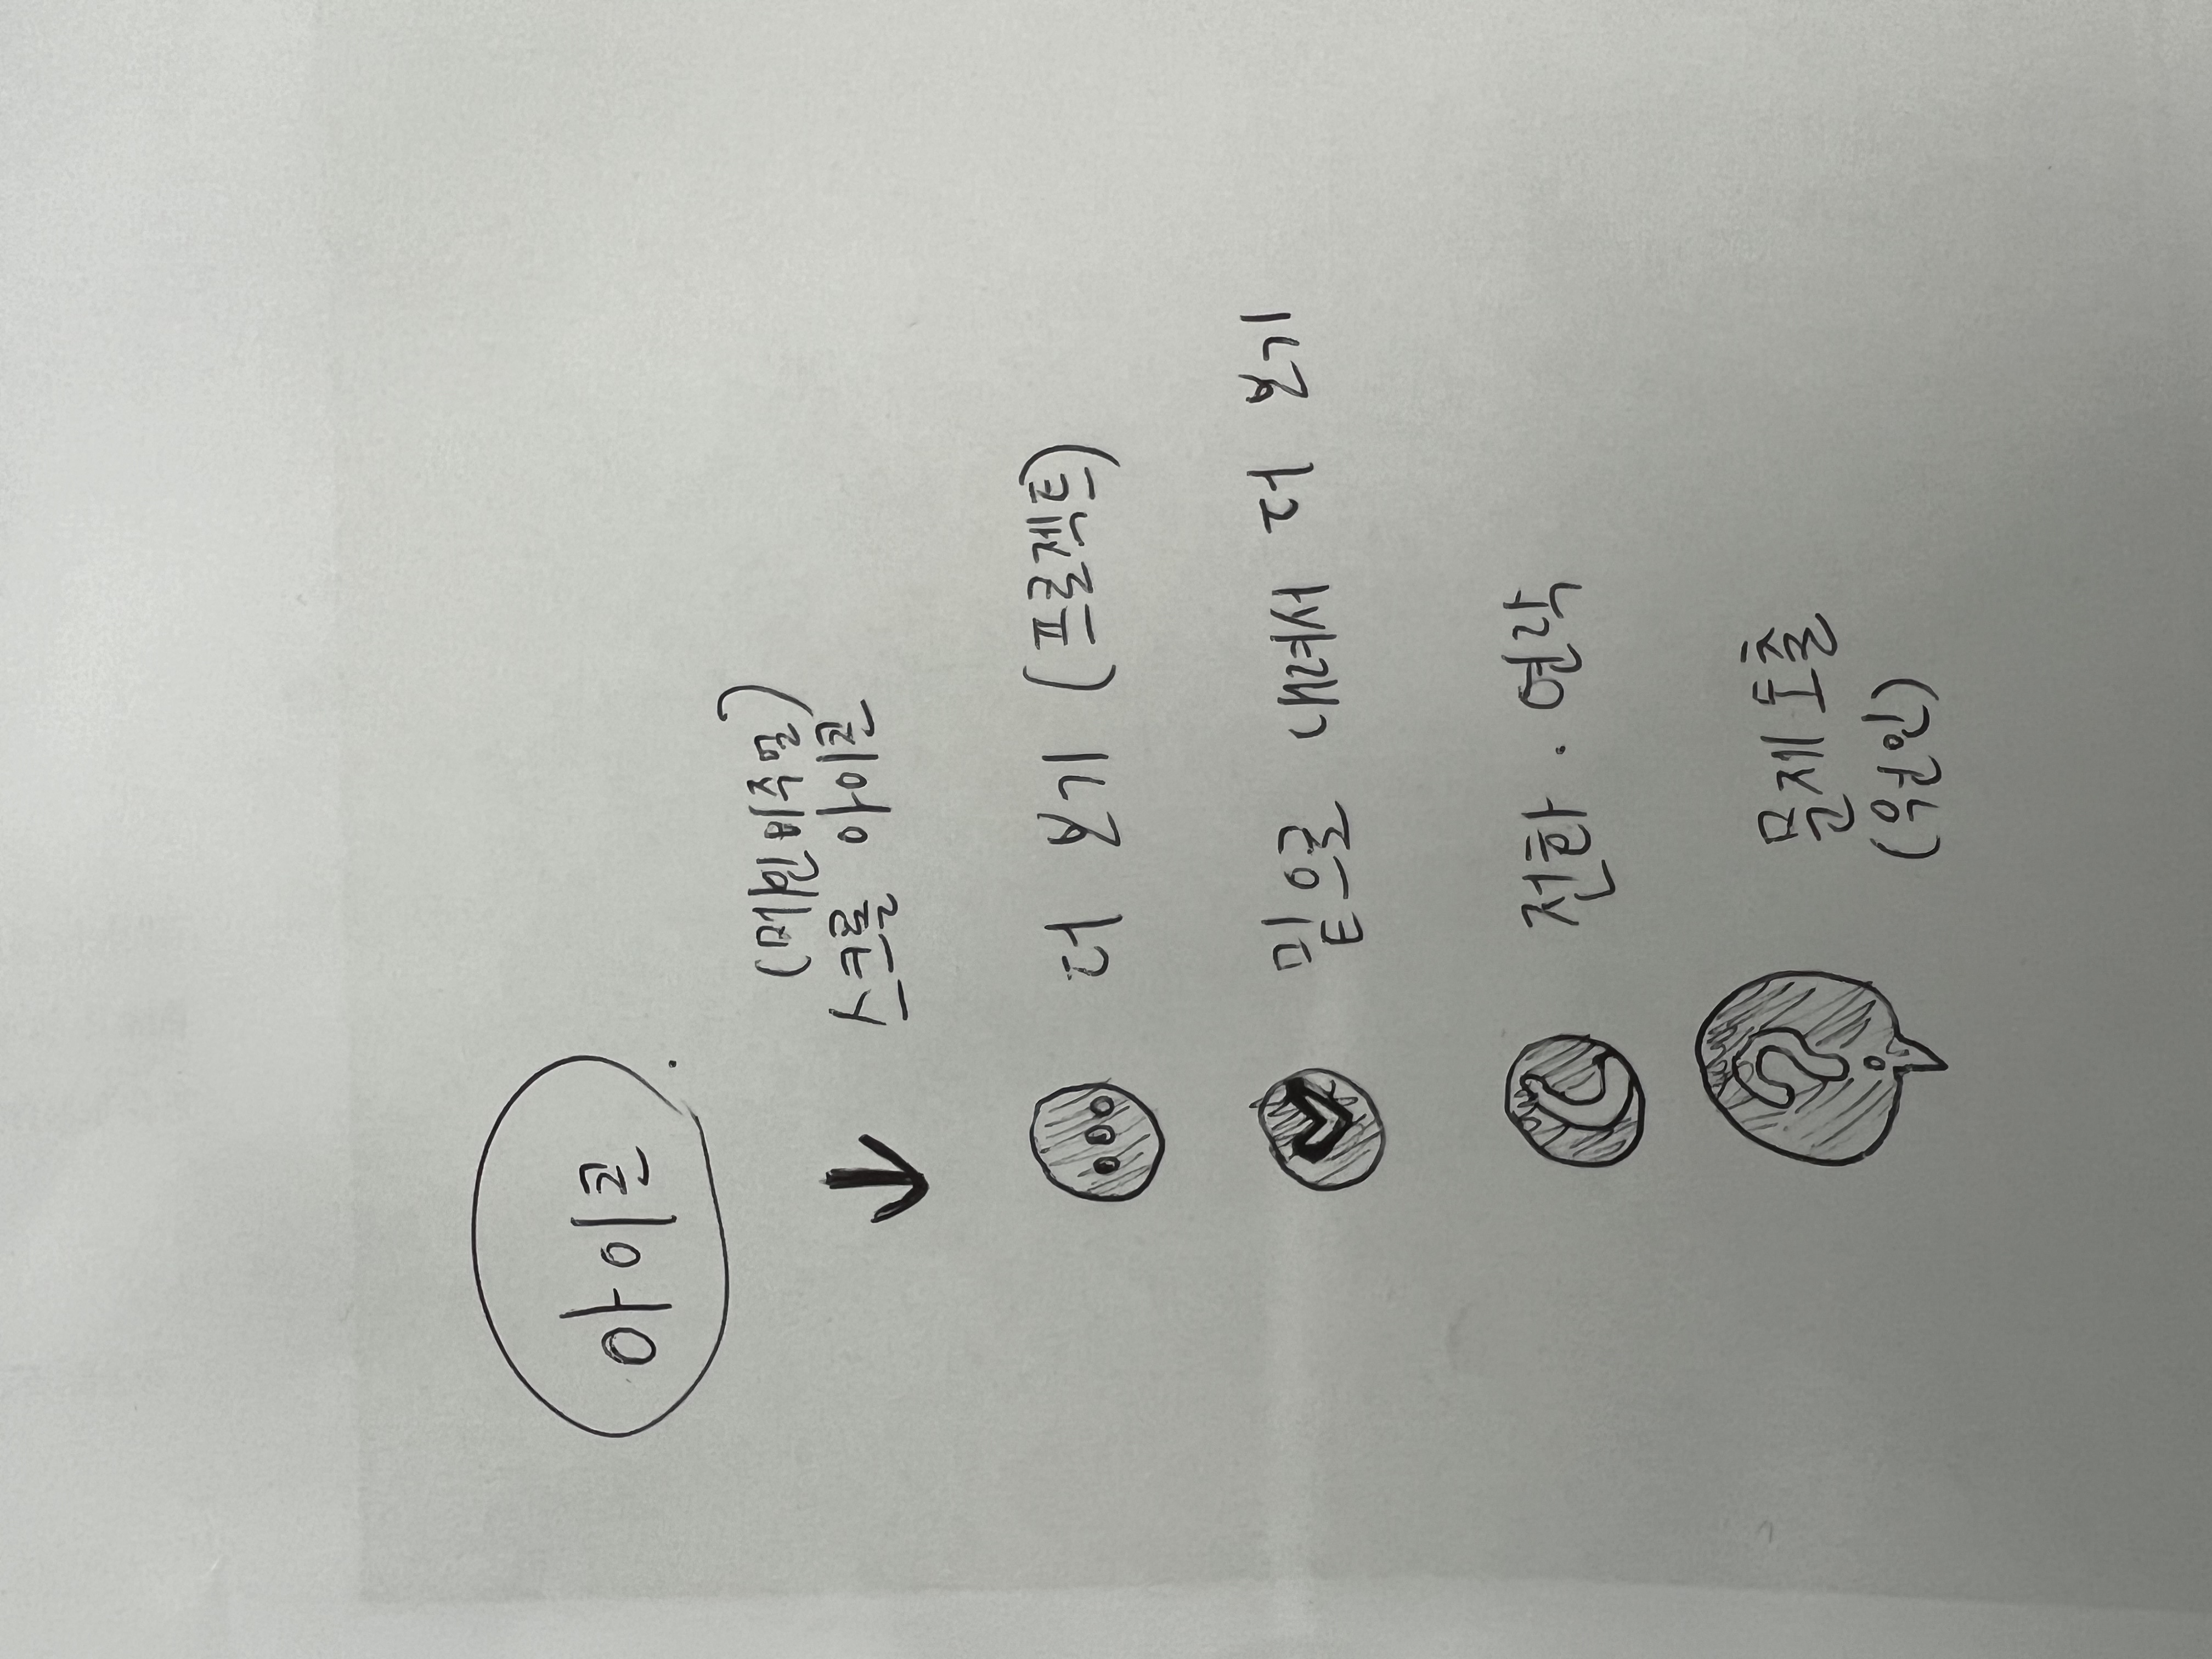 아이콘
(메인비주얼)
스크롤 아이콘
더 보기 (프로젝트)
밑으로 내려서 더 보기
전화 . 연락
?
문제도출
(원인)